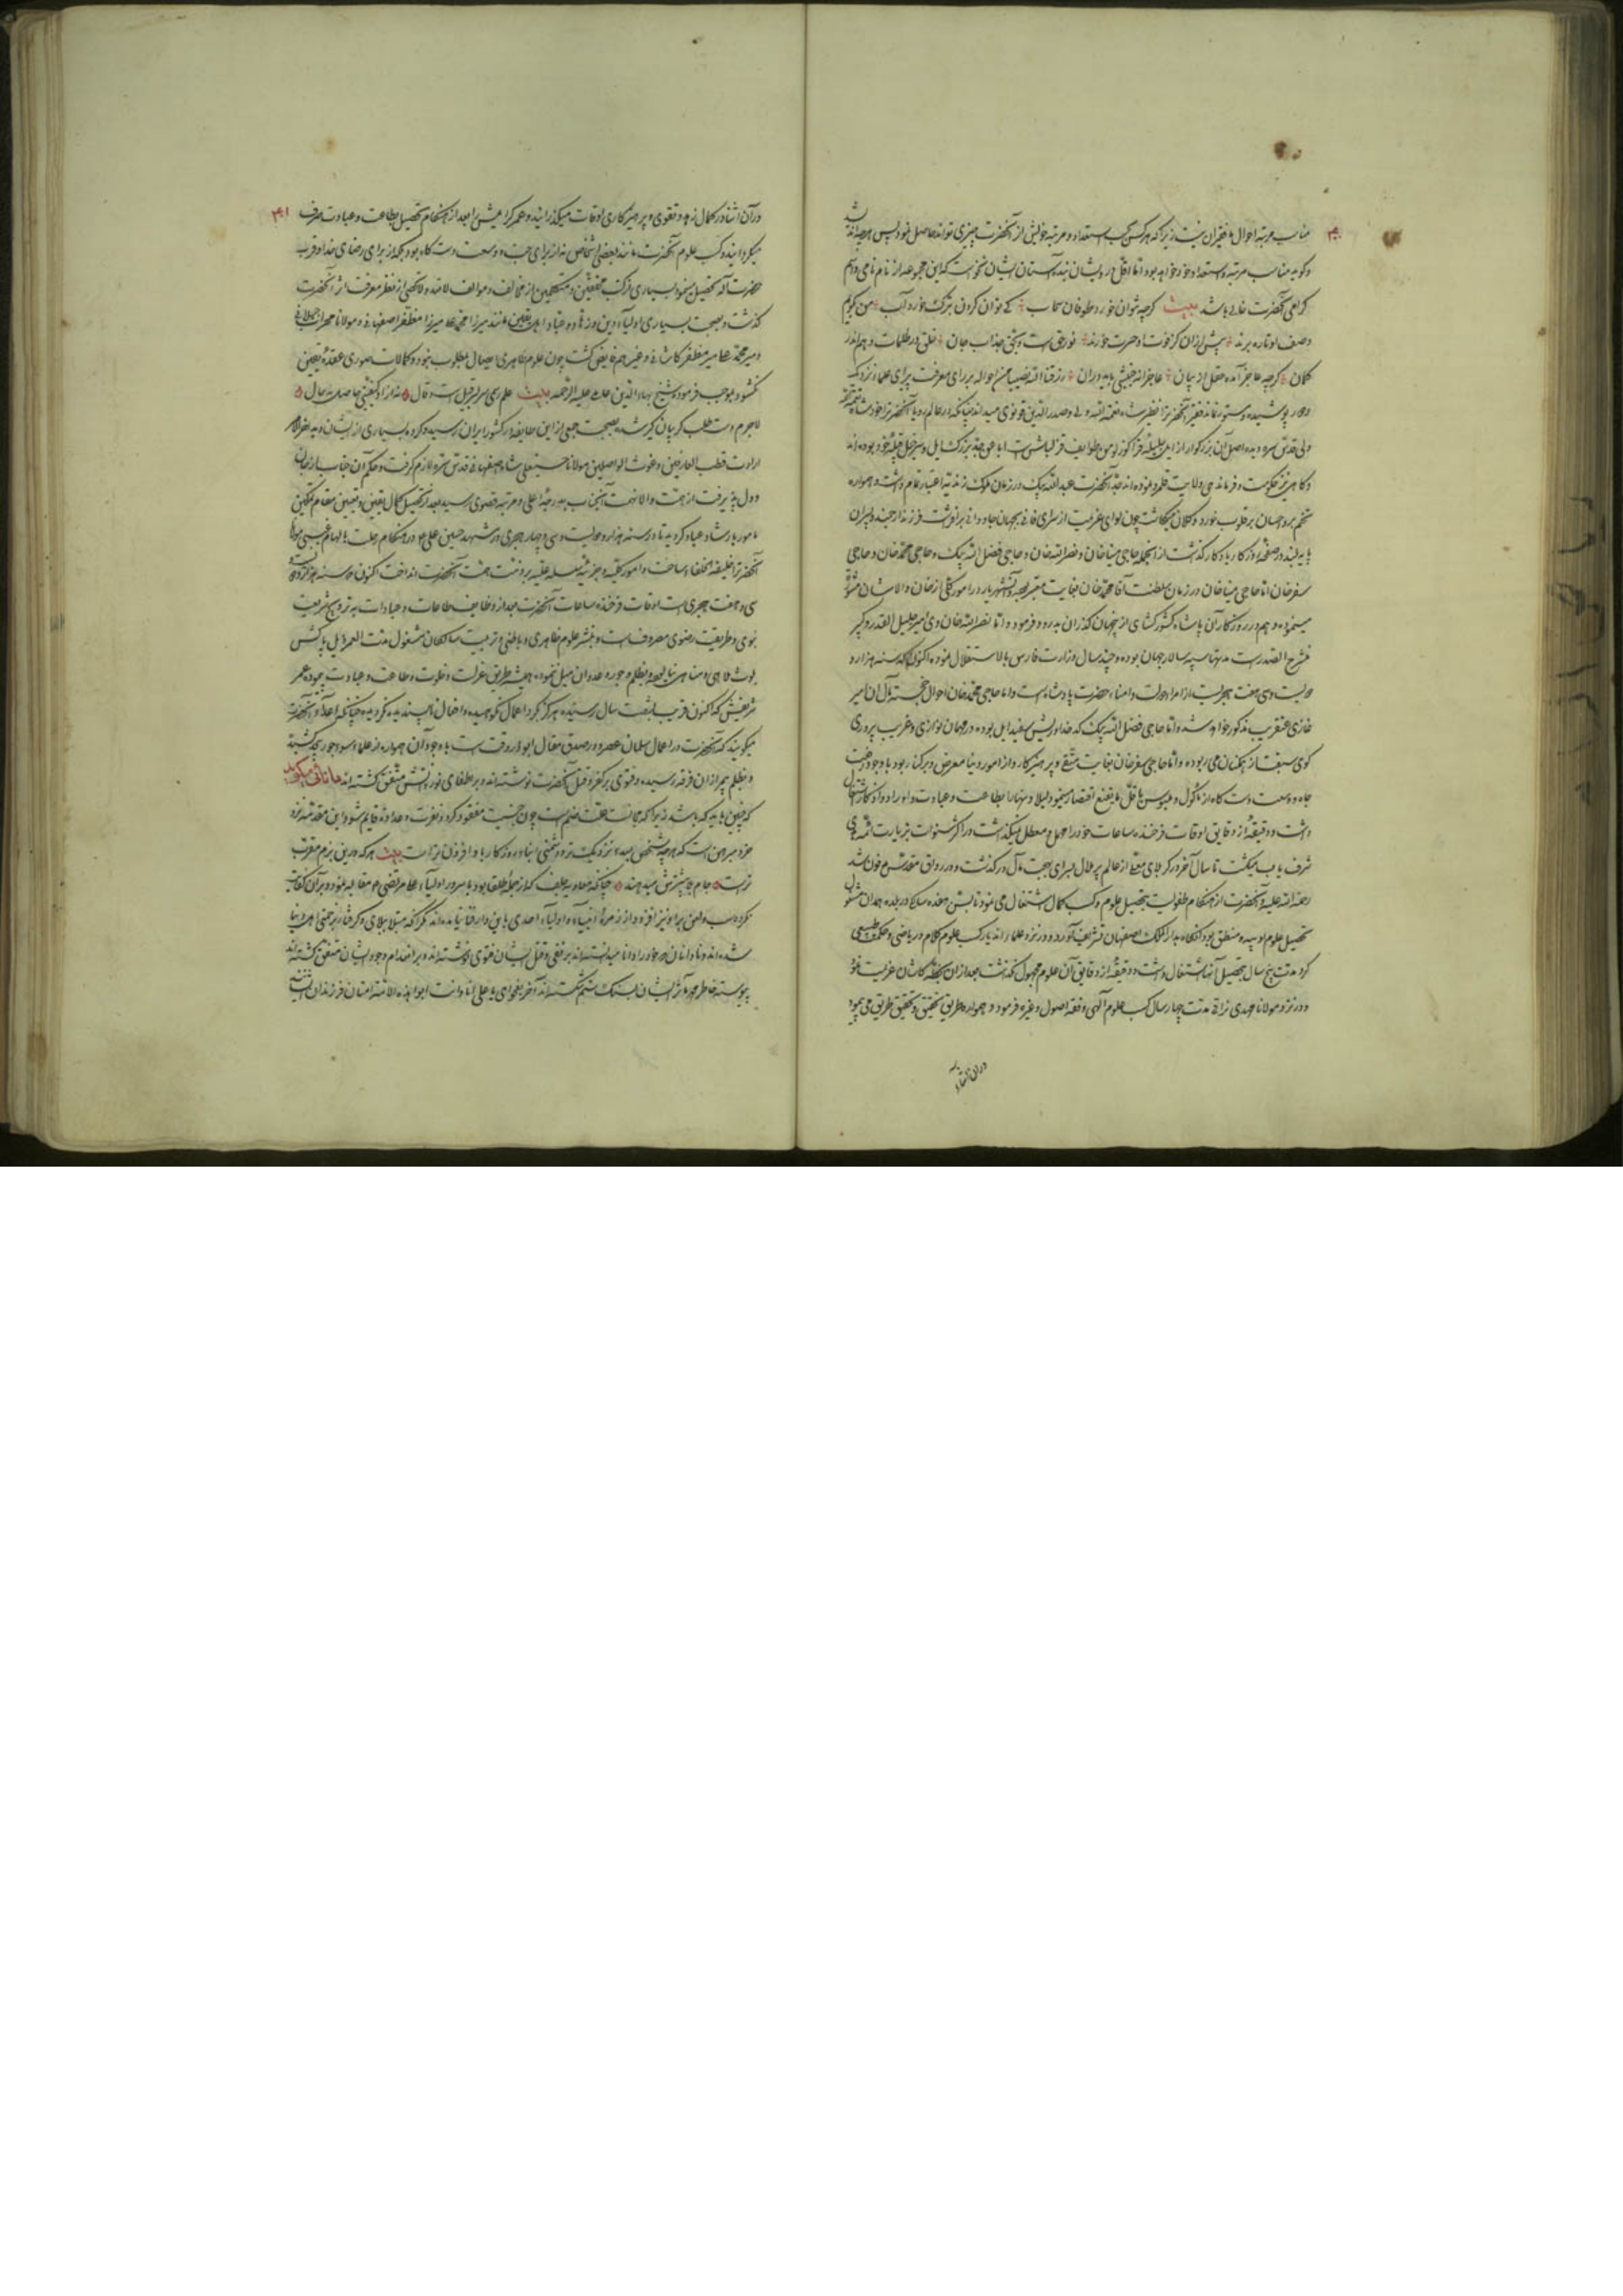 مناسب مرتبه احوال ما فقیران نیست زیرا که هر کس بحسب استعداد و مرتبه خویش از آنحضرت چیزی تواند حاصل نمود پس هرچه اندیشد
و گوید مناسب مرتبه و استعداد خود خواهد بود اما اقل درویشان بنده آستان ایشان نخواست که این مجموعه از نام نامی و اسم
گرامی آنحضرت خالی باشد بیت گرچه نتوان خورد طوفان سحاب کی توان کردن بترک خورد آب من بگویم
وصف او تا ره برند پیش ازان کز فوت او حسرت خورند نور حق است و بحق جذاب جان خلق در ظلمات وهم اند و
گمان گرچه عاجز آمده عقل از بیان عاجزانه جنبشی باید دران رزقنا الله نصیبا من احواله بر رای معرفت پیرای علماء نزدیک
و دور پوشیده و مستور نماند فقیر آنحضرت را نظیر شاه نعمة الله ولی و صدر الدین قونوی میداند چنانکه در عالم رویا آنحضرت را خود شاه نعمة الله
ولی قدس سره دیده اصل آن بزرگوار از ایل جلیله قراگوزلو من طوایف قزلباش است ابا عن جد بزرگ ایل و سرخیل قبیله خود بوده اند
و گاهی نیز حکومت و فرماندهی ولایت قلمرو نموده اند جد آنحضرت عبد الله بیک در زمان ملوک زندیه اعتبار تمام داشت و همواره
تخم بر و احسان بر قلوب خورد و کلان میکاشت چون لوای عزیمت از سرای فانی بجهان جاودانی برافراشت فرزند ارجمند و پسران
پایه بلند در صفحه روزگار یادگار گذاشت از انجمله حاجی میناخان و نصر الله خان و حاجی فضل الله بیک و حاجی محمد خان و حاجی
سفرخان اما حاجی میناخان در زمان سلطنت آقا محمد خان بغایت معتبر بود و آن شهریار در امور کلی از خان والاشان مشورت
مینمود و هم در روزگار آن پادشاه کشورگشای از ینجهان گذران بدرود فرمود و اما نصر الله خان وی امیر جلیل القدر و کبیر
منشرح الصدر است مدتها سپه سالار جهان بوده و چند سال وزارت فارس بالاستقلال نموده اکنون که سنه هزار و
دویست و سی و هفت هجریست از امراء دولت و امناء حضرت پادشاه است و اما حاجی محمد خان احوال خجسته مآل آن امیر
غازی عنقریب مذکور خواهد شد و اما حاجی فضل الله بیک کدخدا و ریش سفید ایل بوده و در مهمان نوازی و غریب پروری
گوی سبقت از همگنان می ربوده و اما حاجی سفرخان بغایت متقی و پرهیزکار و از امور دنیا معرض و برکنار بود با وجود عزت
جاه و وسعت دستگاه از مأکول و ملبوس باقل ما یقنع اقتصار مینمود و لیلا و نهارا بطاعت و عبادت و اوراد و اذکار اشتغال
داشت و دقیقه از دقایق اوقات فرخنده ساعات خود را مهمل و معطل نمیگذاشت و در اکثر سنوات بزیارت ائمه هدی
شرف یاب میگشت تا سال آخر در کربلای معلی از عالم پر ملال بسرای بهجت مآل درگذشت و در رواق مقدس مدفون شد
رحمة الله علیه و آنحضرت از هنگام طفولیت بتحصیل علوم و کسب کمال اشتغال می نمود تا بسن هفده سالگی در بلده همدان مشغول
تحصیل علوم ادبیه و منطق بود آنگاه بدار الملک اصفهان تشریف آورد و در نزد علماء آندیار کسب علوم کلام و ریاضی و حکمت طبیعی
کرد مدت پنج سال بتحصیل آنها اشتغال داشت و دقیقه از دقایق آن علوم مجهول نگذاشت بعد ازان بخطه کاشان عزیمت نمود
و در نزد مولانا مهدی نراقی مدت چهار سال کسب علوم الهی و فقه و اصول و غیره فرمود و همواره طریق تحقیق و تحقیق طریق می پیمود
دران اثناء
۴۰
۴۱
در آن اثنا در کمال زهد و تقوی و پرهیزکاری اوقات میگذرانید و عمر گرامیش را بعد از هنگام تحصیل بطاعت و عبادت صرف
میگردانید و کسب علوم آنحضرت مانند بعضی اشخاص نه از برای جاه و وسعت دستگاه بود بلکه از برای رضای خدا و قرب
حضرت اله تحصیل مینمود بسیاری از کتب محققین و متکلمین از مخالف و موالف لامذ ولاتحصی از نظر معرفت اثر آنحضرت
گذشت و بصحبت بسیاری اولیاء دین و زهاد و عباد اهل یقین مانند میرزا محمد علی میرزا مظفر اصفهانی و مولانا محراب جیلانی
و میر محمد علی میر مظفر کاشانی و غیرهم فایض گشت چون علوم ظاهری ایصال بمطلوب ننمود و کمالات صوری عقده یقین
نگشود بموجب فرموده شیخ بهاء الدین عاملی علیه الرحمه بیت علم رسمی سر بسر قیل است و قال نه ازو کیفیتی حاصل نه حال
لاجرم دست طلب گریبان گیر شده بصحبت جمعی از این طایفه در کشور ایران رسیده و کرده بسیاری از ایشان دیده آخرالامر
ارادت قطب العارفین و غوث الواصلین مولانا حسینعلی شاه اصفهانی قدس سره لازم گرفت و حکم آن جناب را از جان
و دل پذیرفت از همت والا نهمت آنجناب بدرجه اعلی و مرتبه قصوی رسید بعد از تحصیل کمال یقین و تعیین مقام تمکین
مامور بارشاد عباد گردید تا در سنه هزار و دویست و سی و چهار هجری در مشهد حسین علی علیه در هنگام رحلت بالهام غیبی مولانا
آنحضرت را خلیفة الخلفاء ساخت و امور کلیه و جزئیه سلسله علیه بر ذمت همت آنحضرت انداخت اکنون که سنه هزار و دویست
سی و هفت هجری است اوقات فرخنده ساعات آنحضرت بعد از وظایف طاعات و عبادات به ترویج شریعت
نبوی و طریقت رضوی مصروف است و بنشر علوم ظاهری و باطنی و تربیت سالکان مشغول مدت العمر ذیل پاکش
بلوث ملاهی و مناهی نیالوده و بظلم و جور و عدوان میل ننموده همیشه طریق عزلت و خلوت و طاعت و عبادت پیموده عمر
شریفش که اکنون قریب بشصت سال رسیده هرگز گرد اعمال نکوهیده و افعال ناپسندیده نگردیده چنانکه اعداء آنحضرت
میگویند که آنحضرت در اعمال سلمان عصر و در صدق مقال ابوذر وقت است با وجود آن همواره از علماء سوء جور بیحد کشیده
و بظلم بمر ازان فرقه رسیده و فتوی بر کفر و قتل آنحضرت نوشته اند و بر اطفای نور ذاتش متفق گشته اند
که چنین باید که باشد زیرا که مجانست علت ضم است چون جنسیت مفقود گردد نفرت و عداوت قایم شود و این مقدمه نزد
خرد مبرهن است که هرچه شخص بمبدء نزدیک تر و دشمنی ابناء روزگار باو افزون تر است بیت هر که درین بزم مقرب
تر است جام بلا بیشترش میدهند چنانکه معاویه جلف که از جمله طلقا بود با سرور اولیاء علی مرتضی ع مقابله نمود و بر آن کفایت
نکرده سب و لعن بر او نیز افزود و از زمره انبیاء و اولیاء احدی باین دار فنا نیامده اند مگر آنکه مبتلا ببلای و گرفتار بزحمتی اهل دنیا
شده اند و نادانان که خود را دانا میدانسته اند بر نفی و قتل ایشان فتوی نوشته اند و بر انعدام وجود ایشان متفق گشته اند
پیوسته خاطر مهر مآثر ایشان بسنگ ستم شکسته اند آخر بفحوای یا علی انا و انت ابوا هذه الامة امتان فرزندان